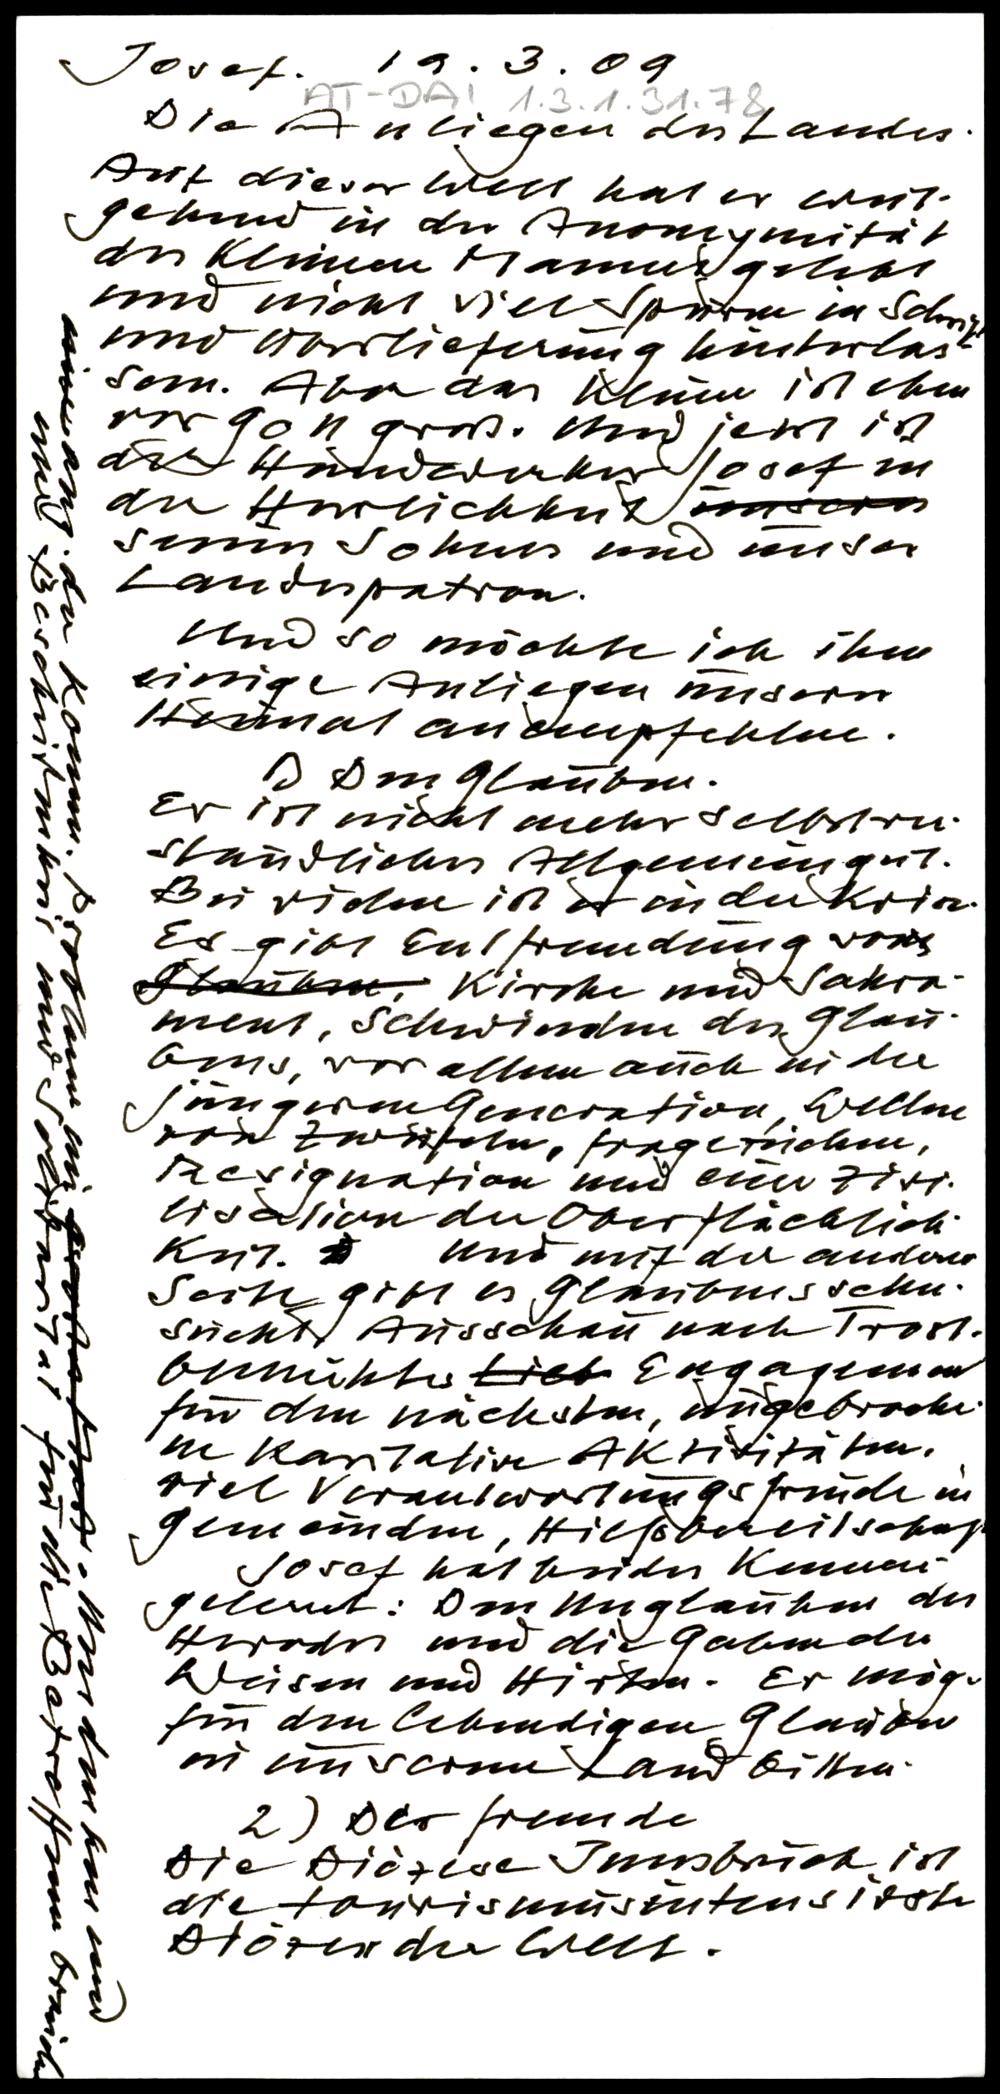 Josef. 19.3.09
AT-DAI 1.3.1.31.78
Die Anliegen des Landes.
Auf dieser Welt hat er weit-
gehend in der Anonymität
des kleinen Mannes gelebt
und nicht viel Spuren in Schrift
und Überlieferung hinterlas-
sen. Aber das Kleine ist eben
vor Gott groß. Und jetzt ist
der Handwerker Josef in
der Herrlichkeit unseres
seines Sohnes und unser
Landespatron.
Und so möchte ich ihm
einige Anliegen unserer
Heimat anempfehlen.
1) Den Glauben.
Er ist nicht mehr selbstver-
ständliches Allgemeingut.
Bei vielen ist er in der Krise.
Es gibt Entfremdung von
Glauben, Kirche und Sakra-
ment, Schwinden des Glau-
bens, vor allem auch in der
jüngeren Generation, Wellen
von Zweifeln, Fragezeichen,
Resignation und eine Zivi-
lisation der Oberflächlich-
keit. Und auf der anderen
Seite gibt es Glaubenssehn-
sucht, Ausschau nach Trost.
bemühtes Lieb Engagement
für den Nächsten, ungebroche-
ne karitative Aktivitäten.
viel Verantwortungsfreude in
Gemeinden, Hilfsbereitschaft
Josef hat beides kennen-
gelernt: Den Unglauben des
Herodes und die Gaben der
Weisen und Hirten. Er möge
für den lebendigen Glauben
in unserem Land bitten.
2) Der Fremde
Die Diözese Innsbruck ist
die tourismusintensivste
Diözese der Welt.
der komm. Problem Nur denken und
und Bescheidenheit und Solidarität für die Betroffenen brauchen